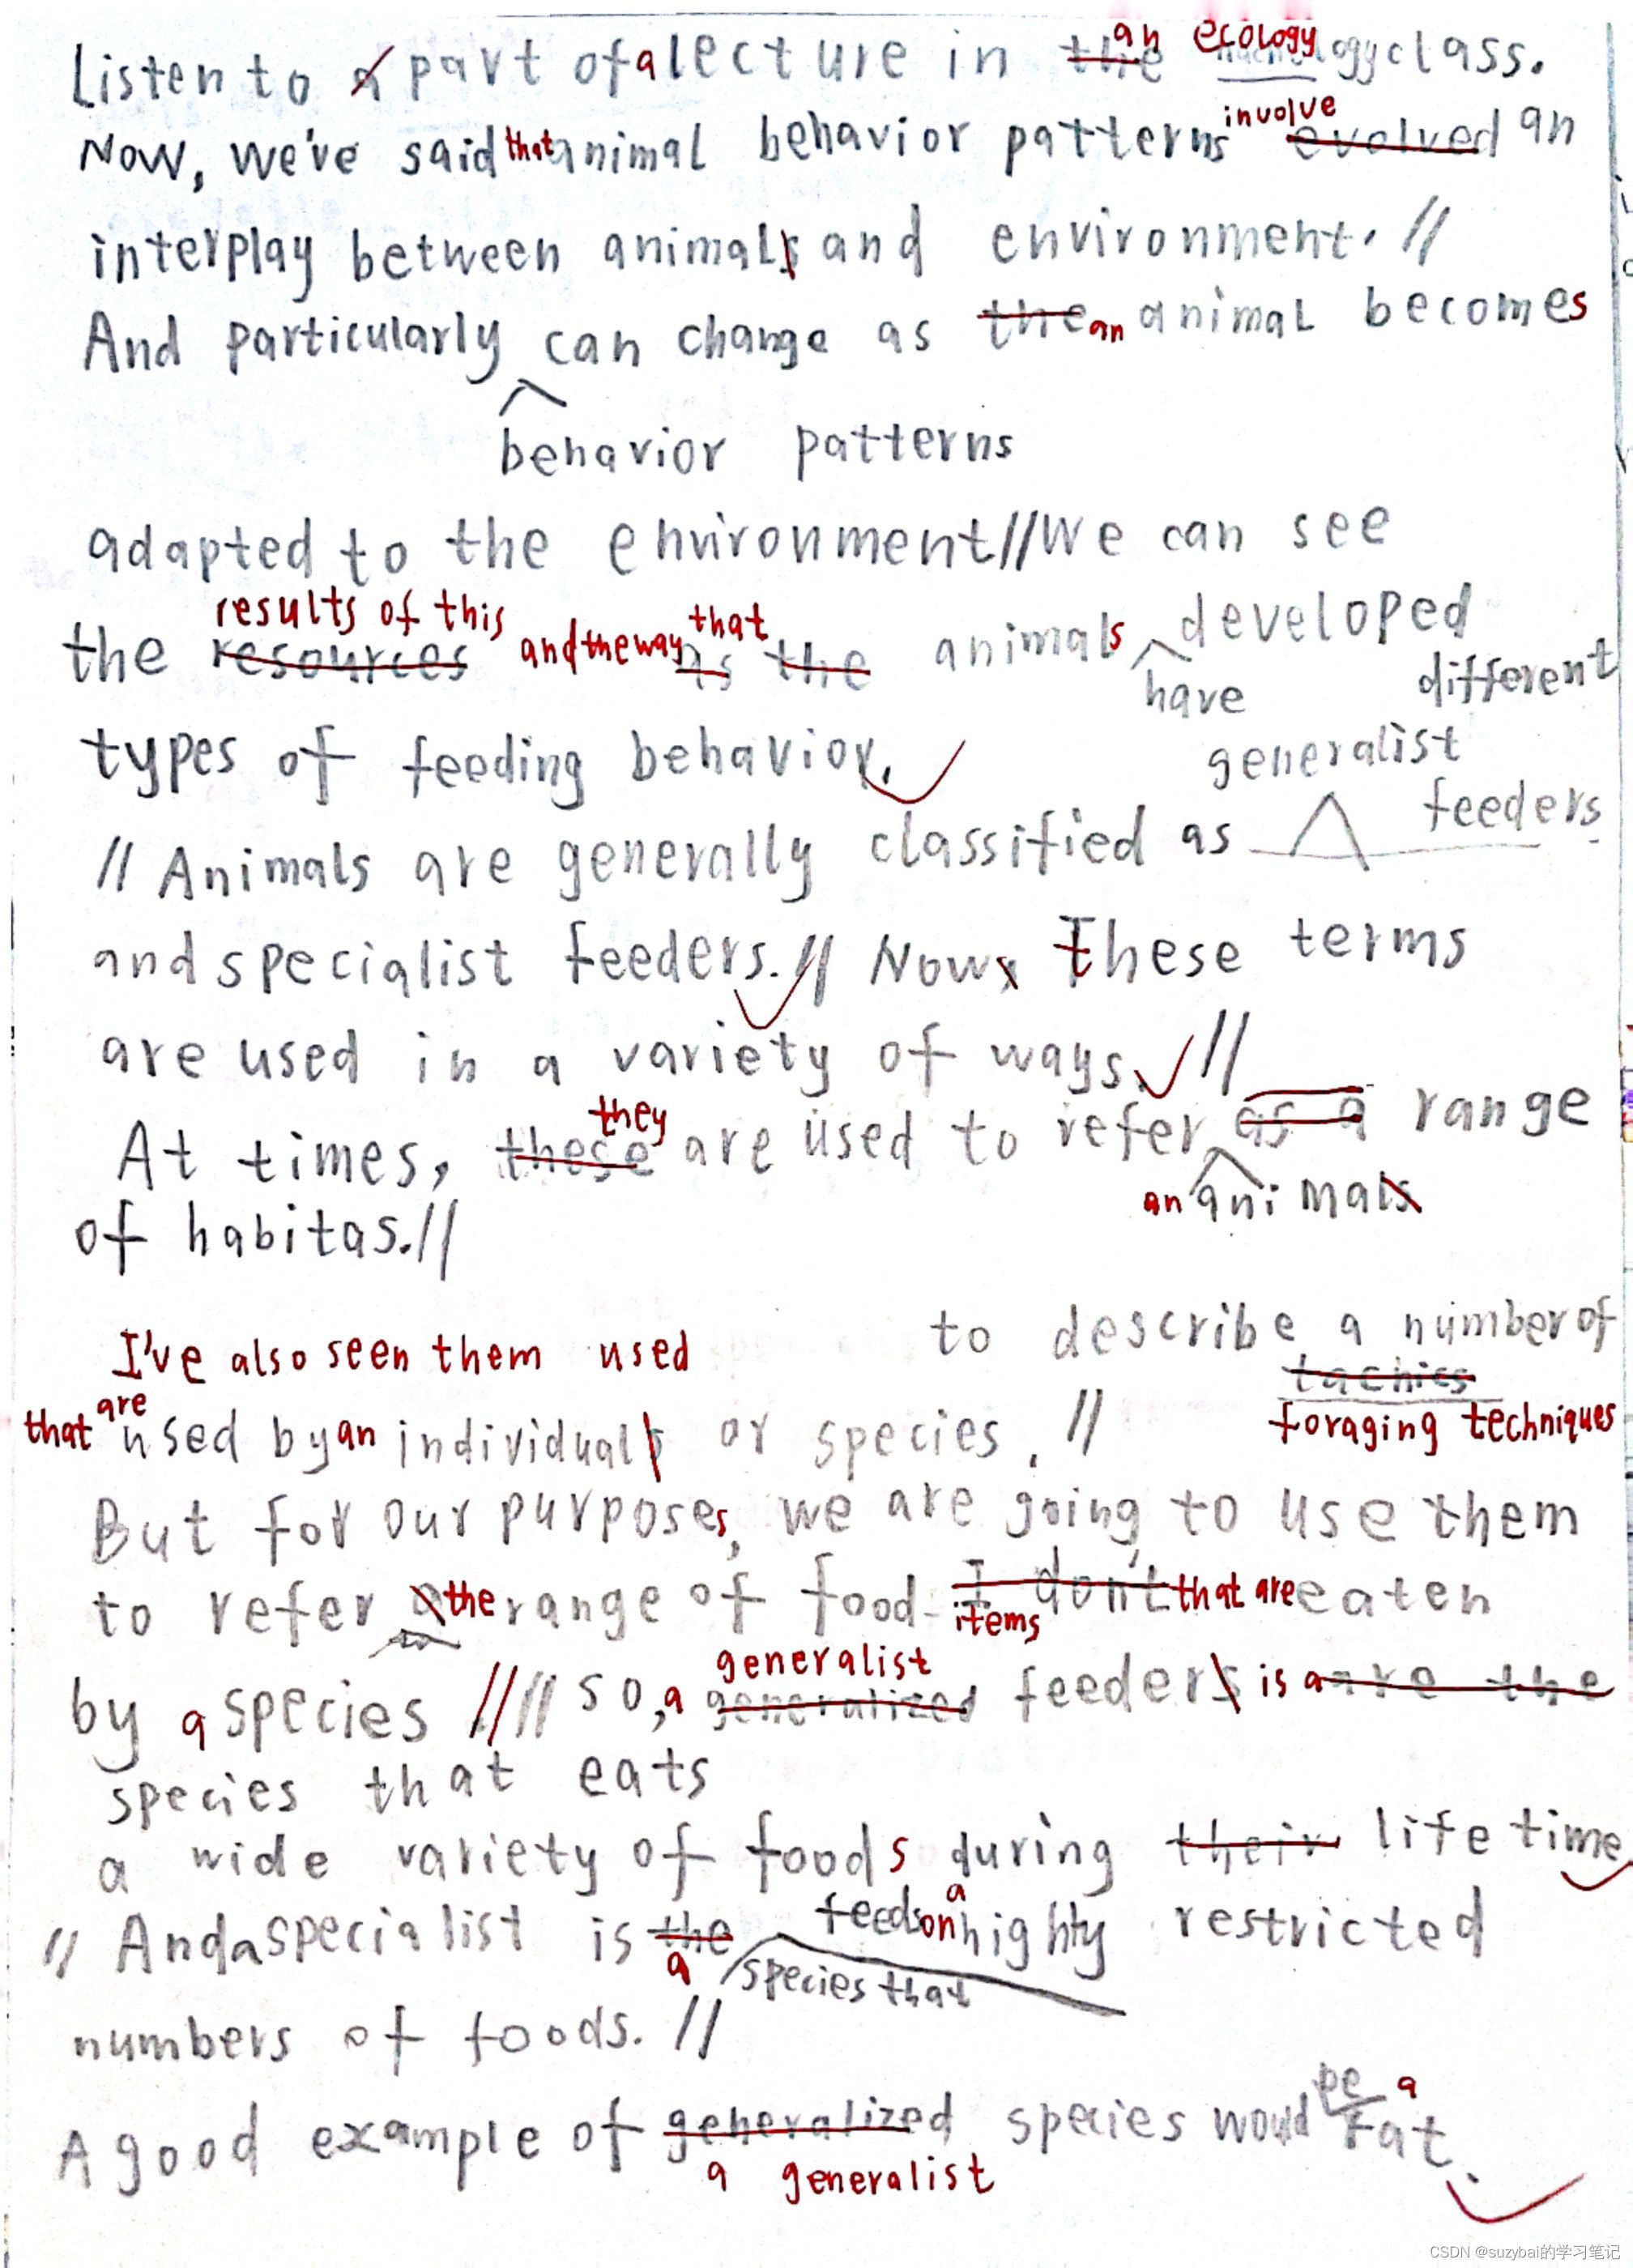 an ecology
Listen to a part of a lecture in the logy class.
that involve
Now, we've said animal behavior patterns evolved an
interplay between animals and environment. //
And particularly can change as the an animal becomes
behavior patterns
adapted to the environment // We can see
results of this and the way that
the resources as the animals developed
have different
types of feeding behavior.
generalist
// Animals are generally classified as feeders
and specialist feeders. // Now, These terms
are used in a variety of ways. //
they
At times, these are used to refer as a range
an animals
of habitas. //
to describe a number of
I've also seen them used
tachics
that are used by an individuals or species. //
foraging techniques
But for our purposes, we are going to use them
to refer a the range of food I don't that are eaten
items
generalist
by a species // // so, a generalized feeders is a are the
species that eats
a wide variety of foods during their life time
feeds on a
// And a specialist is the highly restricted
a species that
numbers of foods. //
be a
A good example of generalized species would rat.
a generalist
CSDN @suzybai的学习笔记